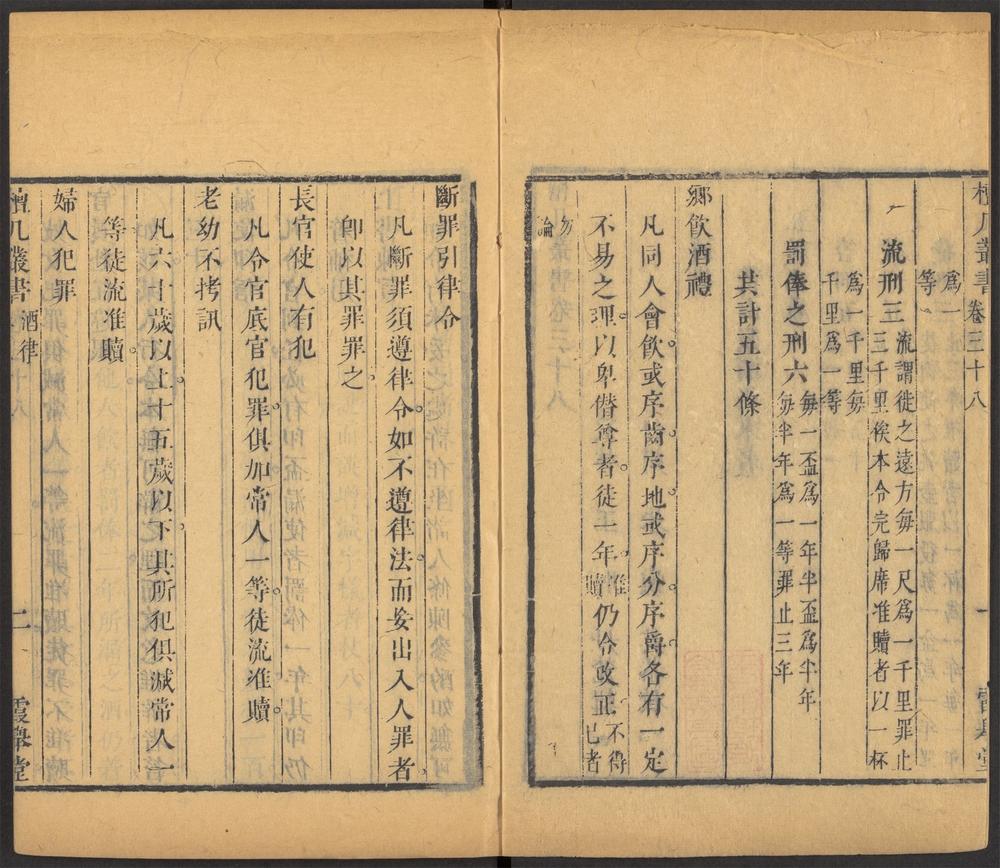 檀几叢書 卷三十八 一 霞舉堂
爲一
等
流刑三 流謂徙之遠方每一尺爲一千里罪止
三千里俟本令完歸席准贖者以一杯
爲一千里每
千里爲一等
罰俸之刑六 每一盃爲一年半盃爲半年
每半年爲一等罪止三年
共計五十條
鄉飲酒禮
凡同人會飲或序齒序地或序分序爵各有一定
不易之理以卑僭尊者徒一年准贖仍令改正不得已者
勿論
斷罪引律令
凡斷罪須遵律令如不遵律法而妄出入人罪者
卽以其罪罪之
長官使人有犯
凡令官底官犯罪俱加常人一等徒流准贖
老幼不拷訊
凡六十歲以上十五歲以下其所犯俱減常人一
等徒流准贖
婦人犯罪
檀几叢書 酒律 二 霞舉堂